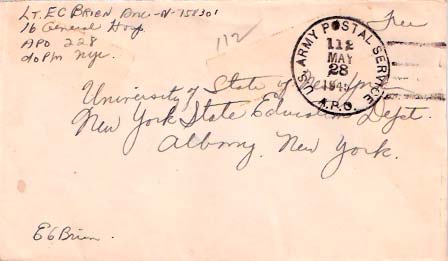 Lt. EC Brien ANC-N-758301
16 General Hosp
APO 228
c/o PM NYC.
112
Free
U.S. ARMY POSTAL SERVICE
112
MAY
28
1945
A.P.O.
University of State of New York
New York State Education Dept.
Albany, New York.
ECBrien.